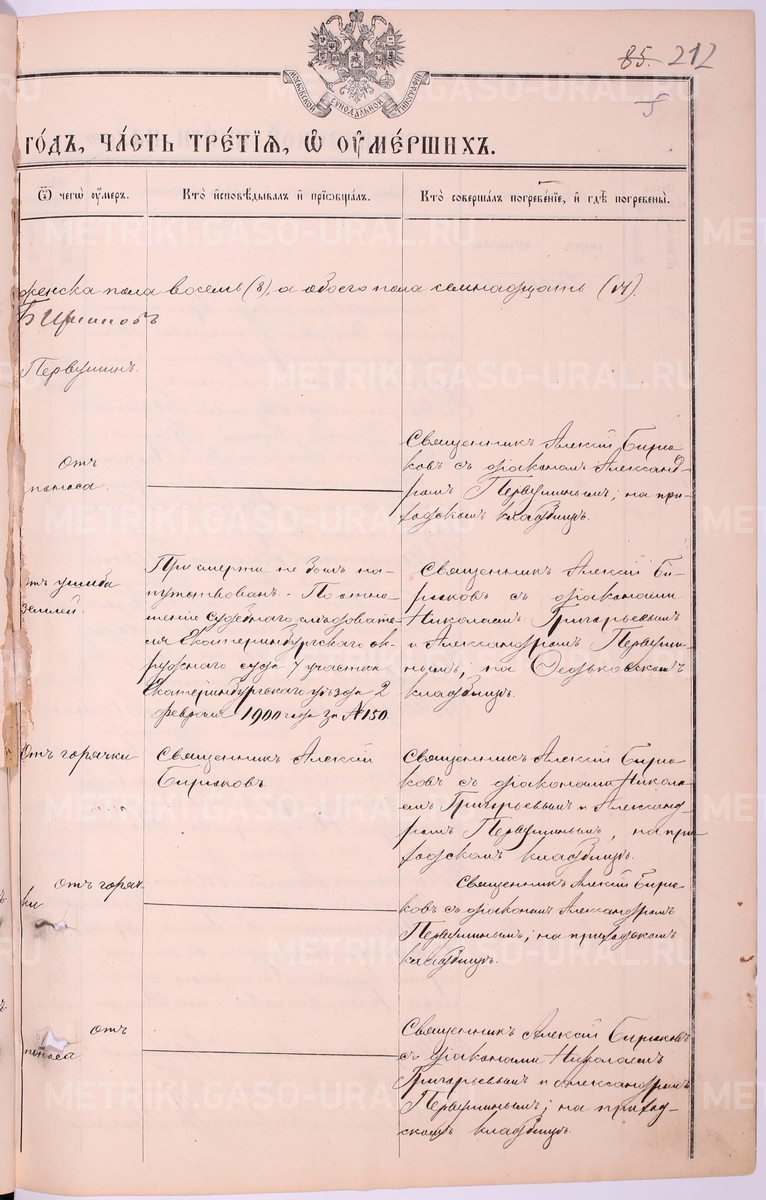 85. 212
5
МОСКОВСКОЙ СѴНОДАЛЬНОЙ ТИПОГРАФІИ
ГО́ДЪ, ЧА́СТЬ ТРЕ́ТІѦ, Ѡ҆ ОУ҆МЕ́РШИХЪ.
Ѿ чегѡ̀ оу҆́меръ.
Кто̀ и҆сповѣ́дывалъ и҆ прїѡбща́лъ.
Кто̀ соверша́лъ погребе́нїе, и҆ гдѣ̀ погребены̀.
женска пола восемь (8), а обоего пола семнадцать (17).
Бирюковъ
Первушинъ.
Отъ
поноса.
Священникъ Алексій Бирю-
ковъ съ діакономъ Александ-
ромъ Первушинымъ; на при-
ходскомъ кладбищѣ.
отъ ушиба
землей.
При смерти не былъ на-
путствованъ. По отно-
шенію Судебнаго слѣдовате-
ля Екатеринбургскаго ок-
ружнаго суда 7 участка
Екатеринбургскаго уѣзда 2
февраля 1900 года за №150
Священникъ Алексій Би-
рюковъ съ діаконами
Николаемъ Григорьевымъ
и Александромъ Первуши-
нымъ, на
кладбищѣ.
Отъ горячки
Священникъ Алексій
Бирюковъ
Священникъ Алексій Бирю-
ковъ съ діаконами Никола-
емъ Григорьевымъ и Александ-
ромъ Первушинымъ, на при-
ходскомъ кладбищѣ.
отъ горяч-
ки.
Священникъ Алексій Бирю-
ковъ съ діакономъ Александромъ
Первушинымъ; на приходскомъ
кладбищѣ.
отъ
поноса
Священникъ Алексій Бирюковъ
съ діаконами Николаемъ
Григорьевымъ и Александромъ
Первушинымъ; на приход-
скомъ кладбищѣ.
METRIKI.GASO-URAL.RU